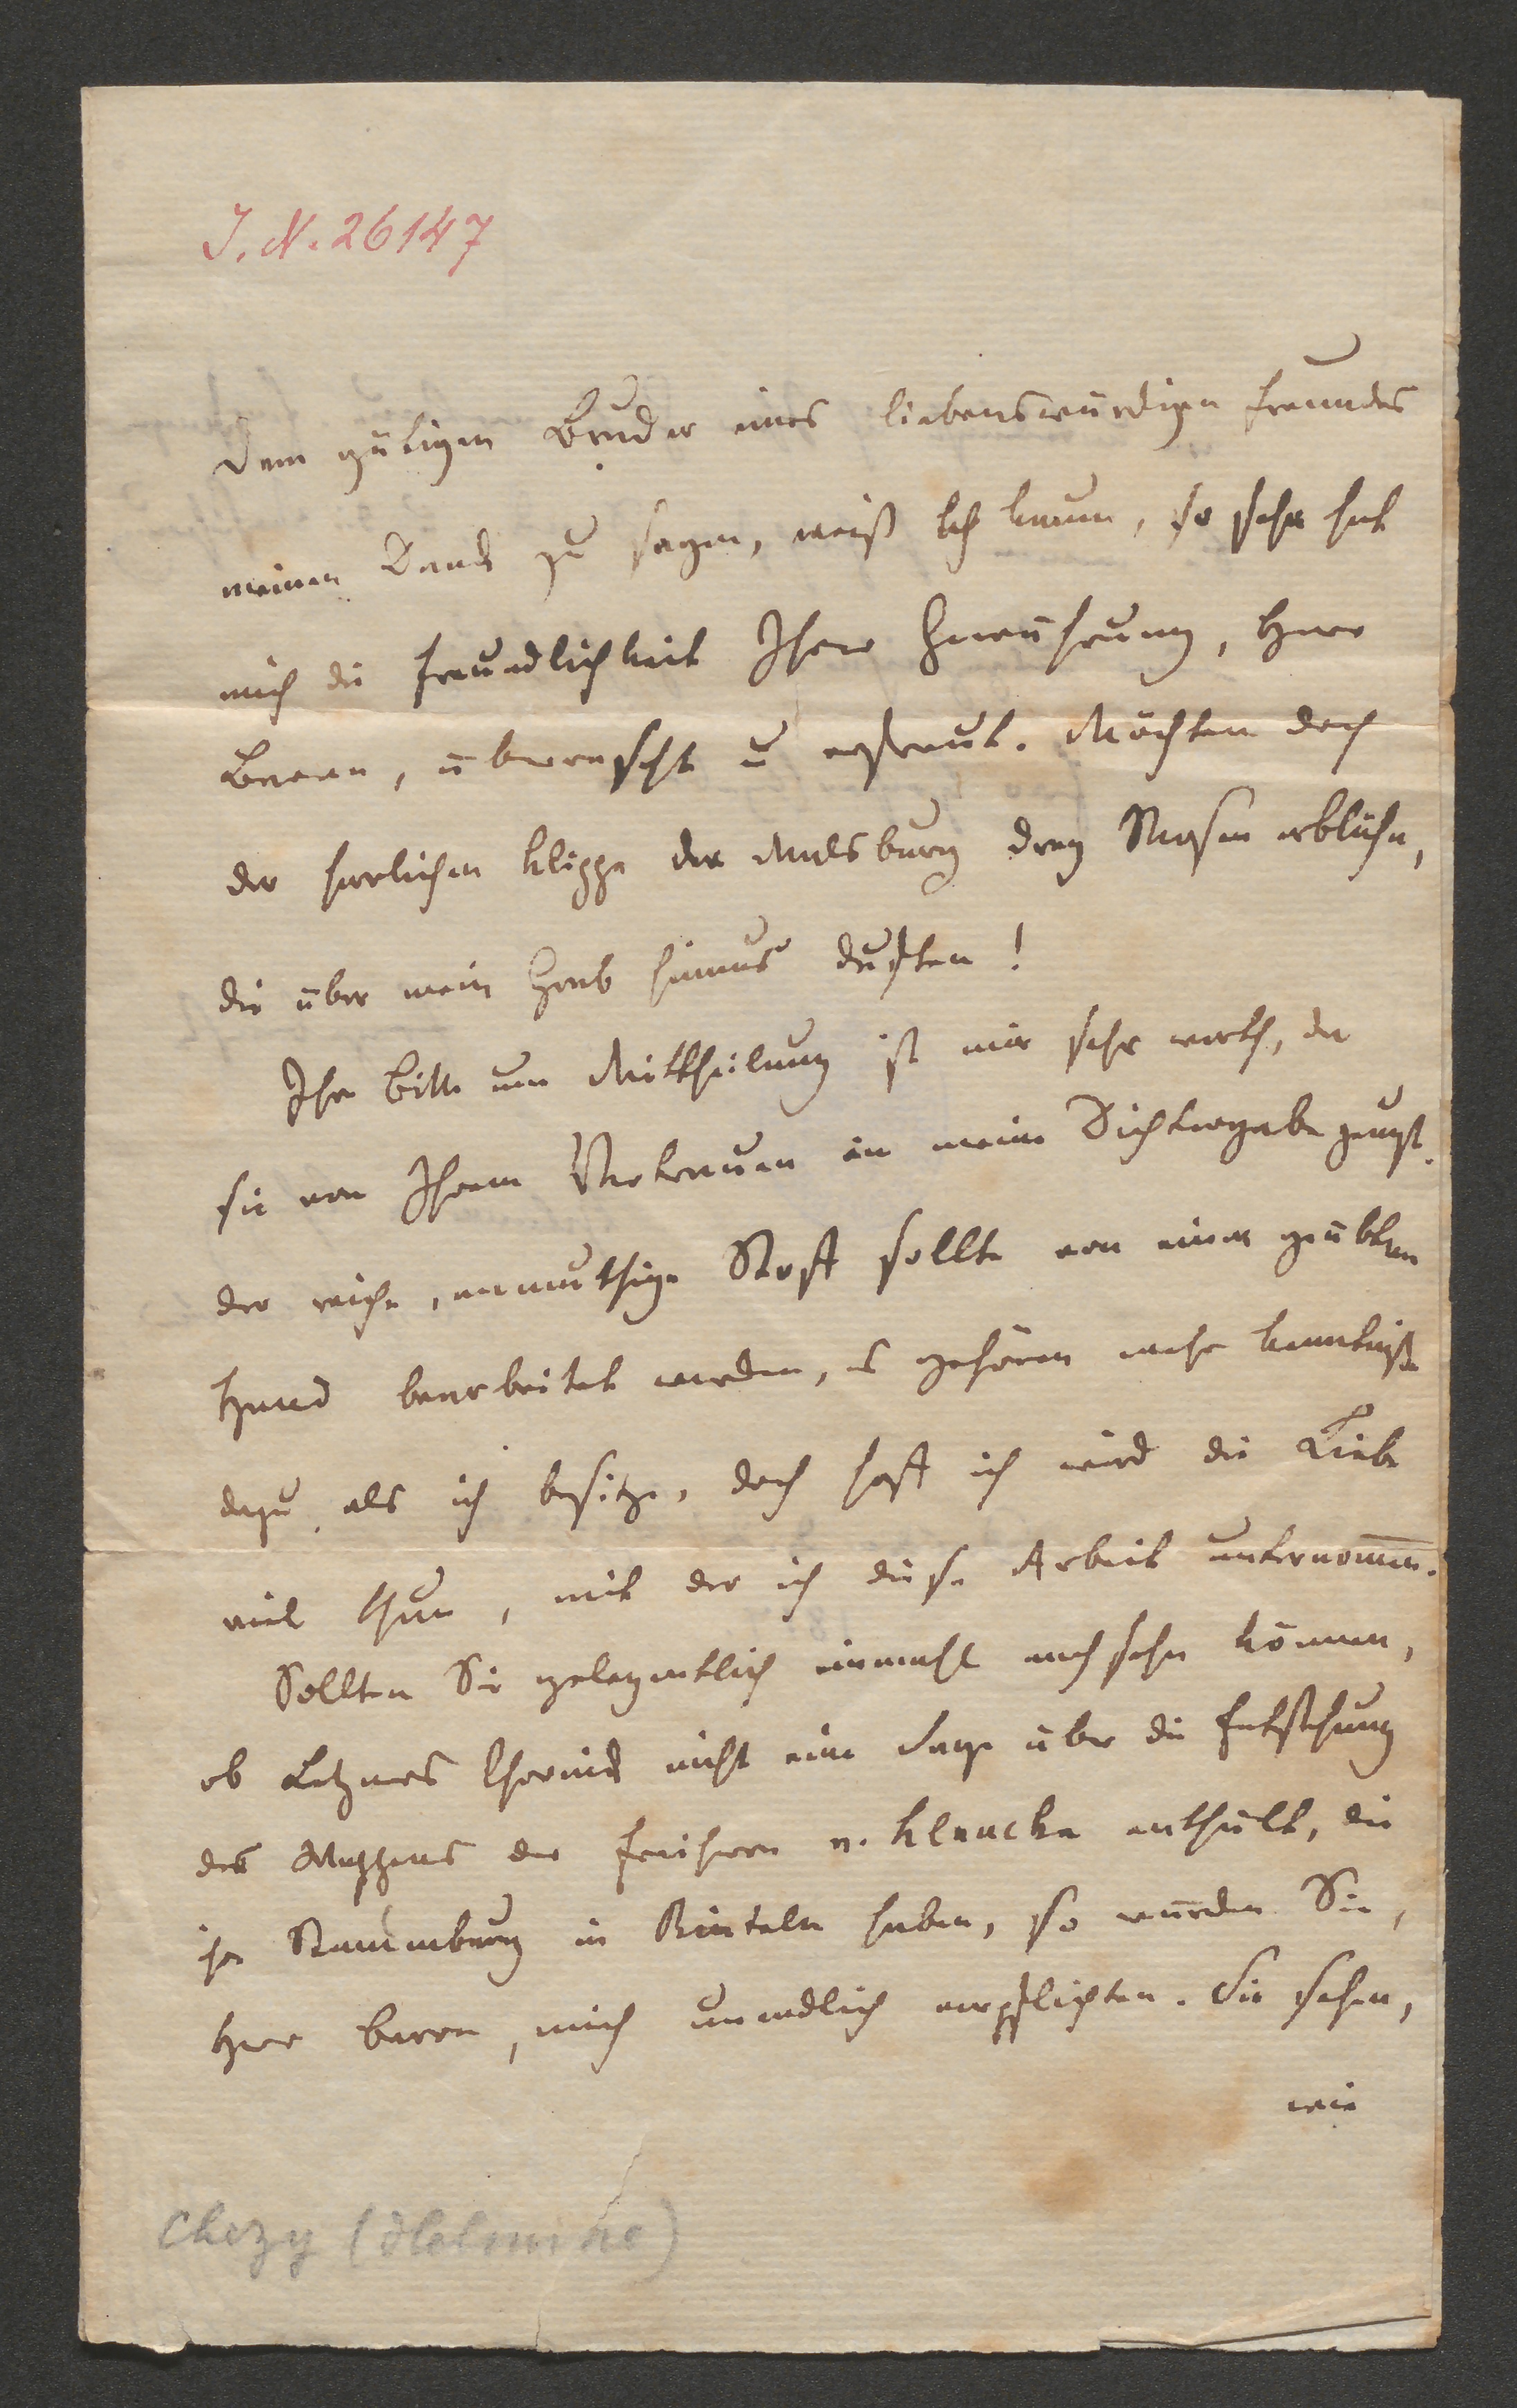 J. N. 26147
Dem gütigen Bruder eines liebenswürdigen Freundes
meinen Dank zu sagen, weiß ich kaum, so sehr hat
mich die Freundlichkeit Ihrer Gewährung, Herr
Baron, überrascht u erfreut. Möchten doch
der herrlichen Klippe der Malsburg drey Rosen erblühn,
die über mein Grab hinaus duften!
Ihr Bitte um Mittheilung ist mir sehr werth, da
sie von Ihrem Vertrauen in meine Dichtergabe zeugt.
der reiche, anmuthige Stoff sollte von einer geübtern
Hand bearbeitet werden, es gehören mehr Kenntniße
dazu, als ich besitze, doch hoff ich wird die Liebe
viel thun, mit der ich diese Arbeit unternommen.
Sollten Sie gelegentlich einmahl nachsehn können,
ob Letzners Chronik nicht eine Sage über die Entstehung
des Wappens der Freiherrn v. Klencke enthält, die
ihr Stammburg in Rinteln haben, so würden Sie,
Herr Baron, mich unendlich verpflichten. Sie sehen,
wie
Chezy (Helmine)